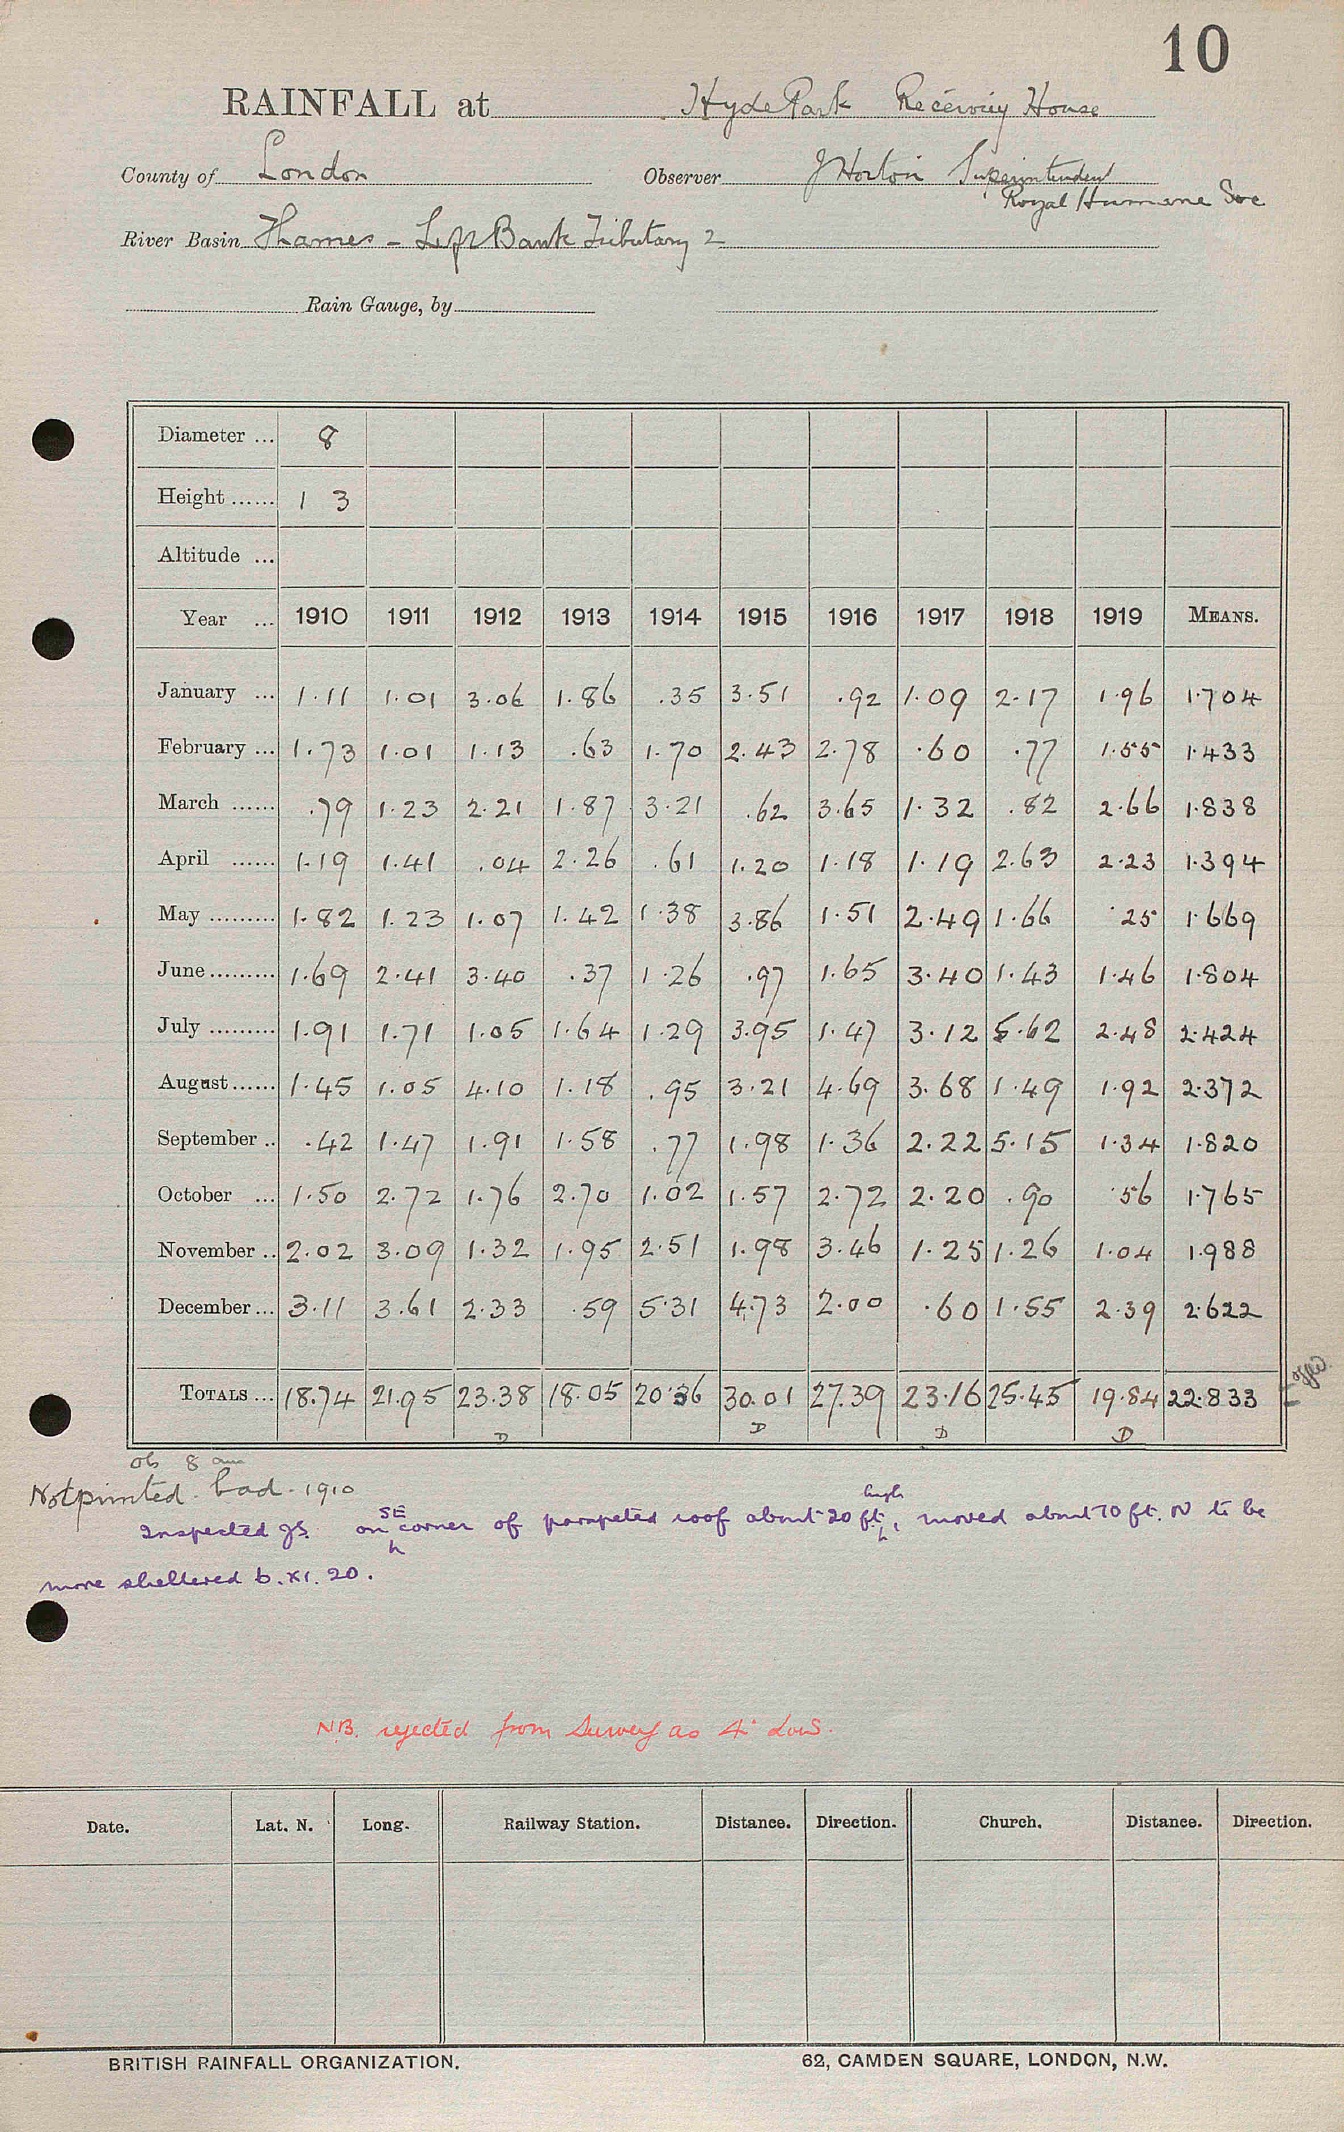 10
RAINFALL at Hyde Park Receiving House
County of London Observer J Horton Superintendent
Royal Humane Soc
River Basin Thames - Left Bank Tributary 2
Rain Gauge, by
Diameter ... 8
Height ...... 1 3
Altitude ...
Year ... 1910 1911 1912 1913 1914 1915 1916 1917 1918 1919 MEANS.
January ... 1.11 1.01 3.06 1.86 .35 3.51 .92 1.09 2.17 1.96 1.704
February ... 1.73 1.01 1.13 .63 1.70 2.43 2.78 .60 .77 1.55 1.433
March ...... .79 1.23 2.21 1.87 3.21 .62 3.65 1.32 .82 2.66 1.838
April ...... 1.19 1.41 .04 2.26 .61 1.20 1.18 1.19 2.63 2.23 1.394
May ......... 1.82 1.23 1.07 1.42 1.38 3.86 1.51 2.49 1.66 .25 1.669
June ......... 1.69 2.41 3.40 .37 1.26 .97 1.65 3.40 1.43 1.46 1.804
July ......... 1.91 1.71 1.05 1.64 1.29 3.95 1.47 3.12 5.62 2.48 2.424
August ...... 1.45 1.05 4.10 1.18 .95 3.21 4.69 3.68 1.49 1.92 2.372
September .. .42 1.47 1.91 1.58 .77 1.98 1.36 2.22 5.15 1.34 1.820
October ... 1.50 2.72 1.76 2.70 1.02 1.57 2.72 2.20 .90 .56 1.765
November .. 2.02 3.09 1.32 1.95 2.51 1.98 3.46 1.25 1.26 1.04 1.988
December ... 3.11 3.61 2.33 .59 5.31 4.73 2.00 .60 1.55 2.39 2.622
TOTALS ... 18.74 21.95 23.38 18.05 20.36 30.01 27.39 23.16 25.45 19.84 22.833
D D D D
ob 8 am
Not printed. bad. 1910
Inspected on SE corner of parapeted roof about 20 ft high, moved about 70 ft. N to be
more sheltered 6.XI.20.
N.B. rejected from Survey as 4" low.
Date. Lat. N. Long. Railway Station. Distance. Direction. Church. Distance. Direction.
BRITISH RAINFALL ORGANIZATION. 62, CAMDEN SQUARE, LONDON, N.W.